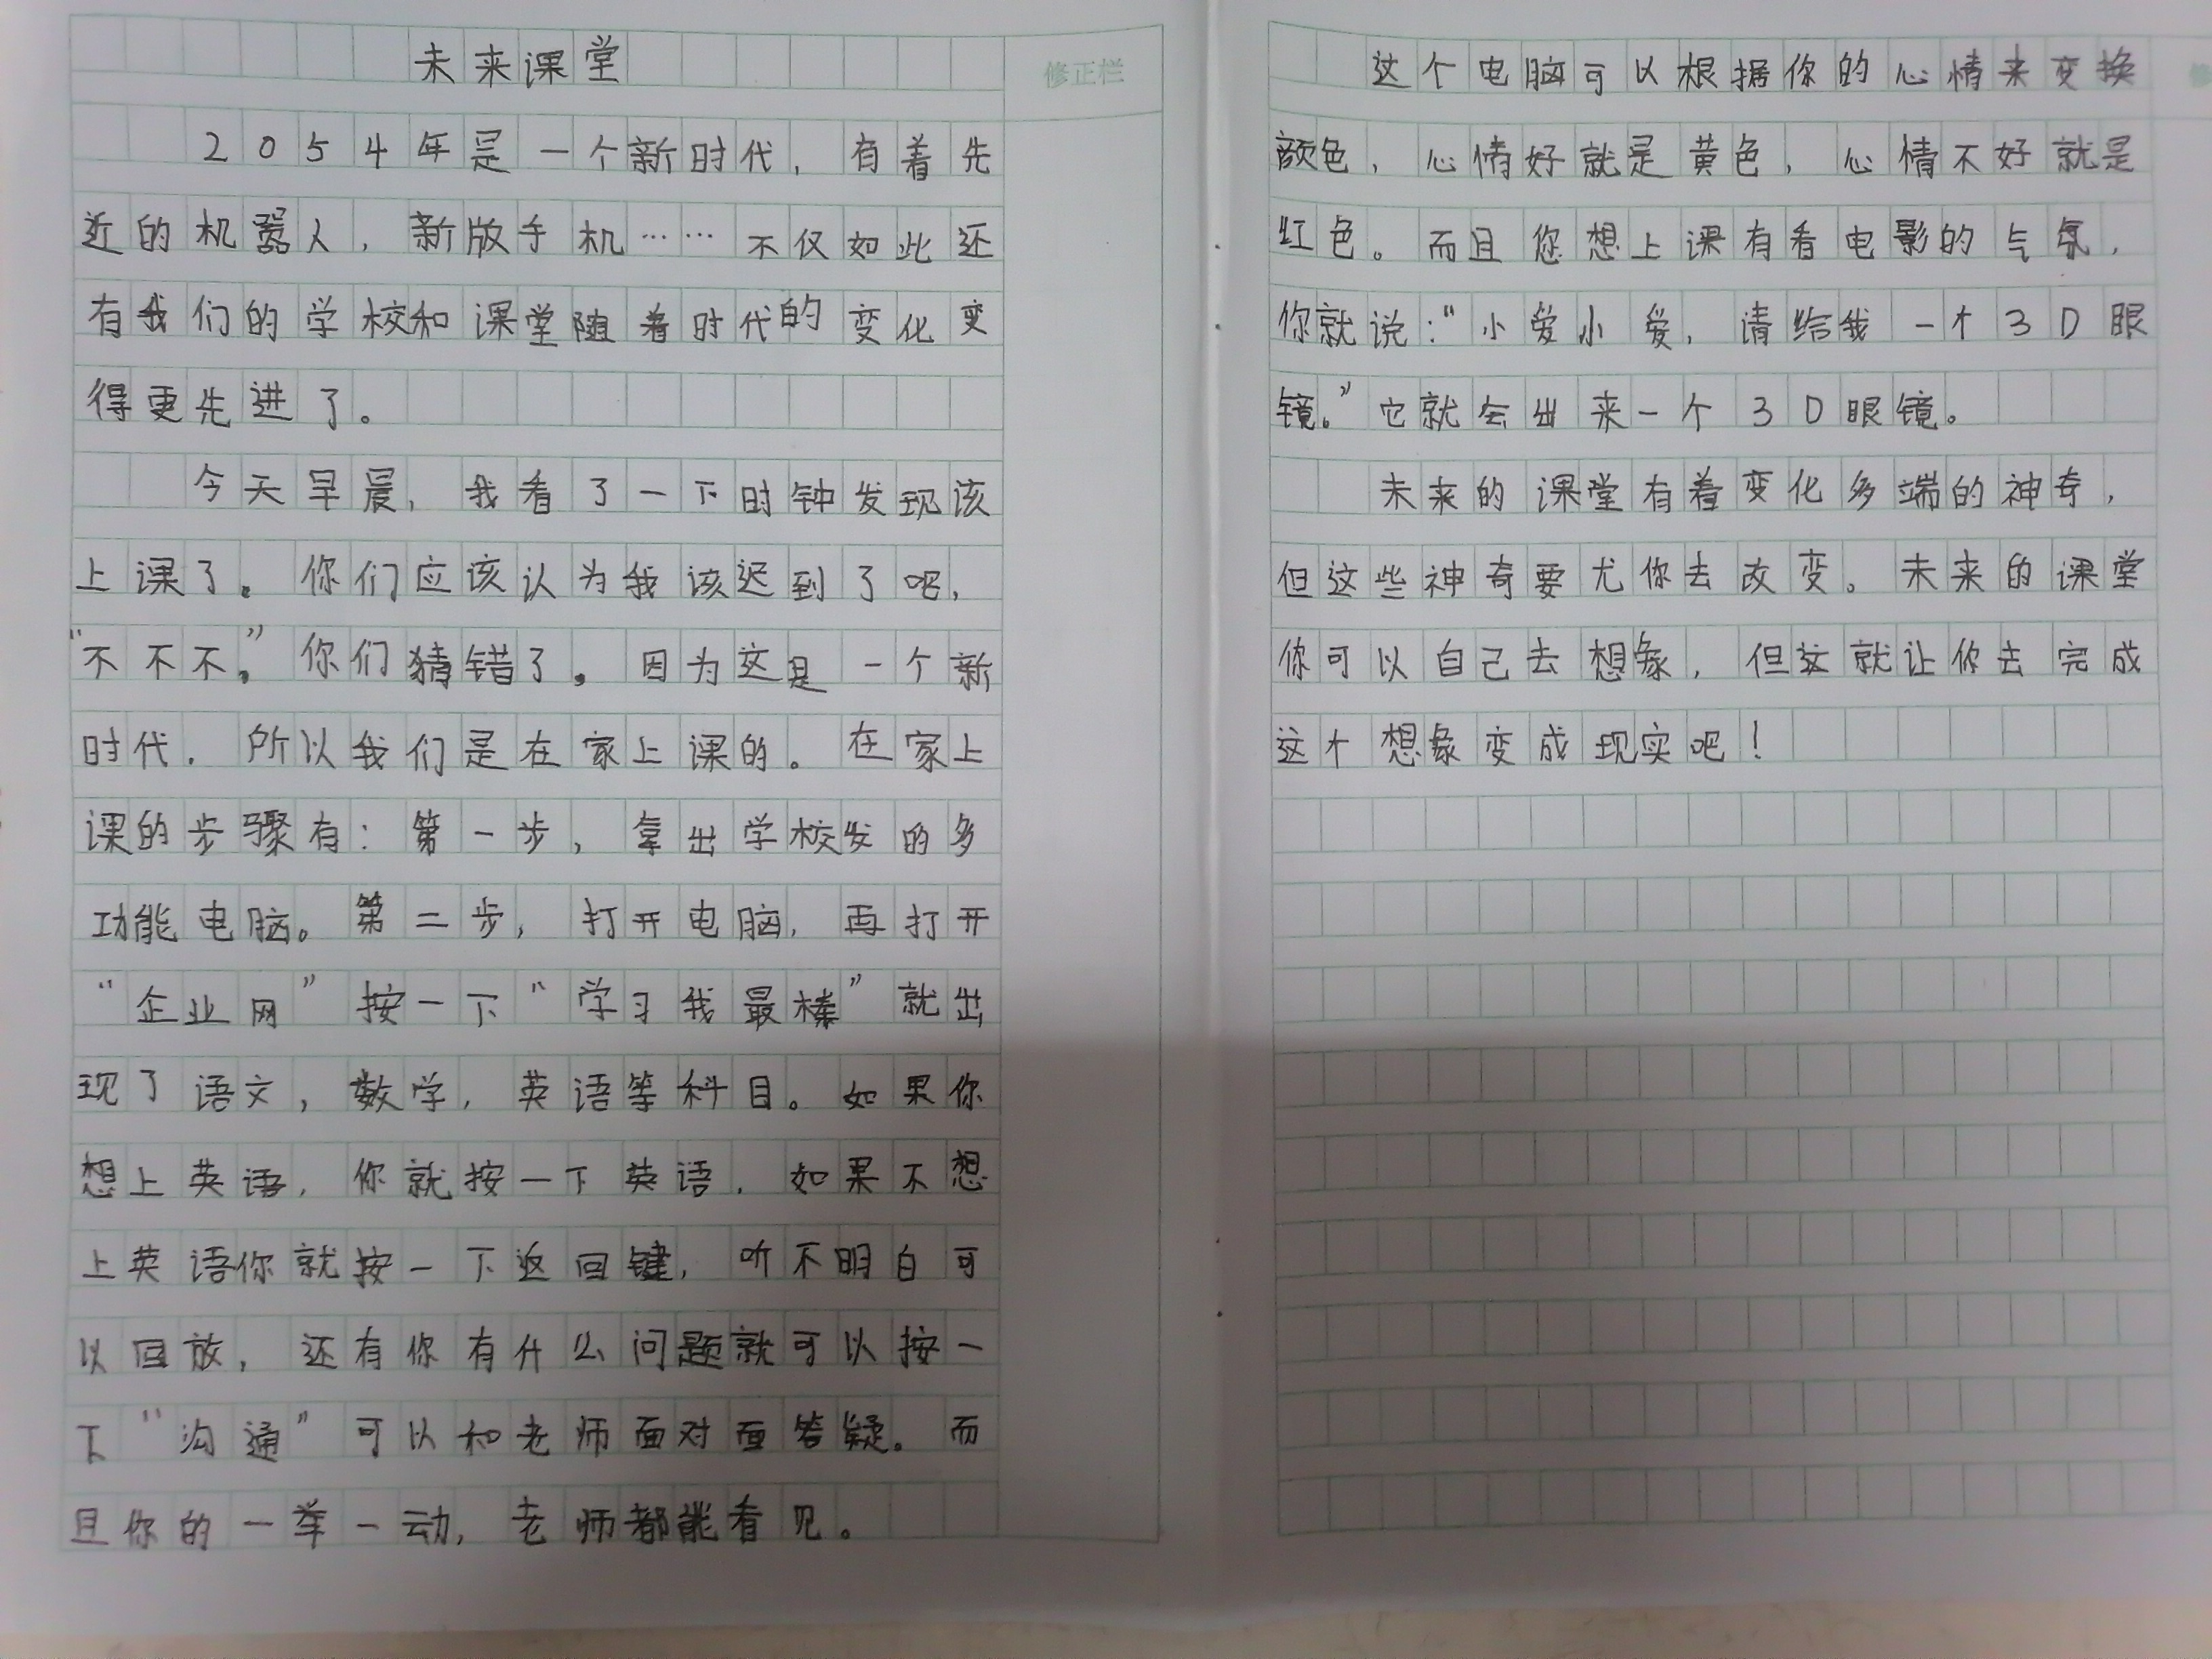 未来课堂
修正栏
2054年是一个新时代，有着先
近的机器人，新版手机……不仅如此还
有我们的学校和课堂随着时代的变化变
得更先进了。
今天早晨，我看了一下时钟发现该
上课了。你们应该认为我该迟到了吧，
“不不不。”你们猜错了。因为这是一个新
时代，所以我们是在家上课的。在家上
课的步骤有：第一步，拿出学校发的多
功能电脑。第二步，打开电脑，再打开
“企业网”按一下“学习我最棒”就出
现了语文，数学，英语等科目。如果你
想上英语，你就按一下英语，如果不想
上英语你就按一下返回键，听不明白可
以回放，还有你有什么问题就可以按一
下“沟通”可以和老师面对面答疑。而
且你的一举一动，老师都能看见。
这个电脑可以根据你的心情来变换
颜色，心情好就是黄色，心情不好就是
红色。而且您想上课有看电影的气氛，
你就说：“小爱小爱，请给我一个3D眼
镜。”它就会出来一个3D眼镜。
未来的课堂有着变化多端的神奇，
但这些神奇要尤你去改变。未来的课堂
你可以自己去想象，但这就让你去完成
这个想象变成现实吧！